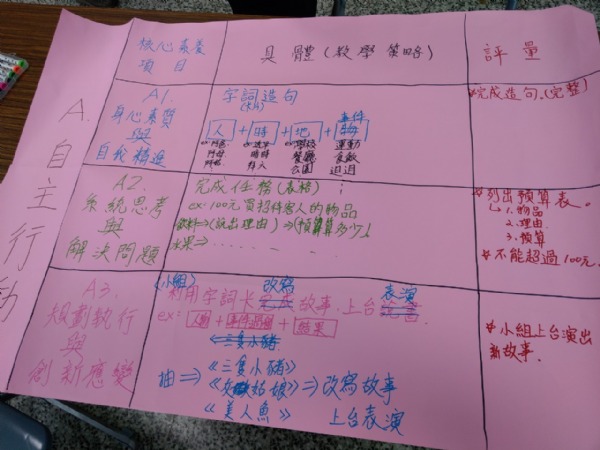 核心素養
項目
具體(教學策略)
評量
A.自主行動
A1.
身心素質
與
自我精進
字詞造句
事件
人+時+地+物
運動
餐廳
食飲
公園
*完成造句.(完整)
A2.
系統思考
與
解決問題
完成任務(表格);
ex:100元買招待客人的物品
飲料⇒(說出理由)⇒(預算多少)
水果⇒......
*列出預算表。
1.物品
2.理由
3.預算
*不能超過100元.
A3.
規劃執行
與
創新應變
(小組)
改寫
表演
利用字詞卡完成故事.上台說書.
ex:人物+事件過程+結果
《三隻小豬》
抽⇒《三隻小豬》
《灰姑娘》⇒改寫故事
《美人魚》 上台表演
*小組上台演出
新故事.